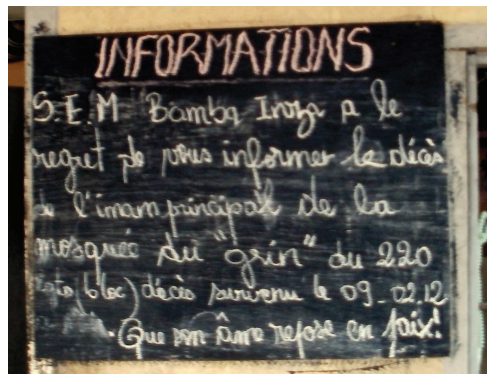 INFORMATIONS
S.E.M Bamba Inza a le
regret de vous informer le décès
de l'imam principal de la
mosquée du "grin" du 220
(bloc) décès survenu le 09-02.12
. Que son âme repose en paix!